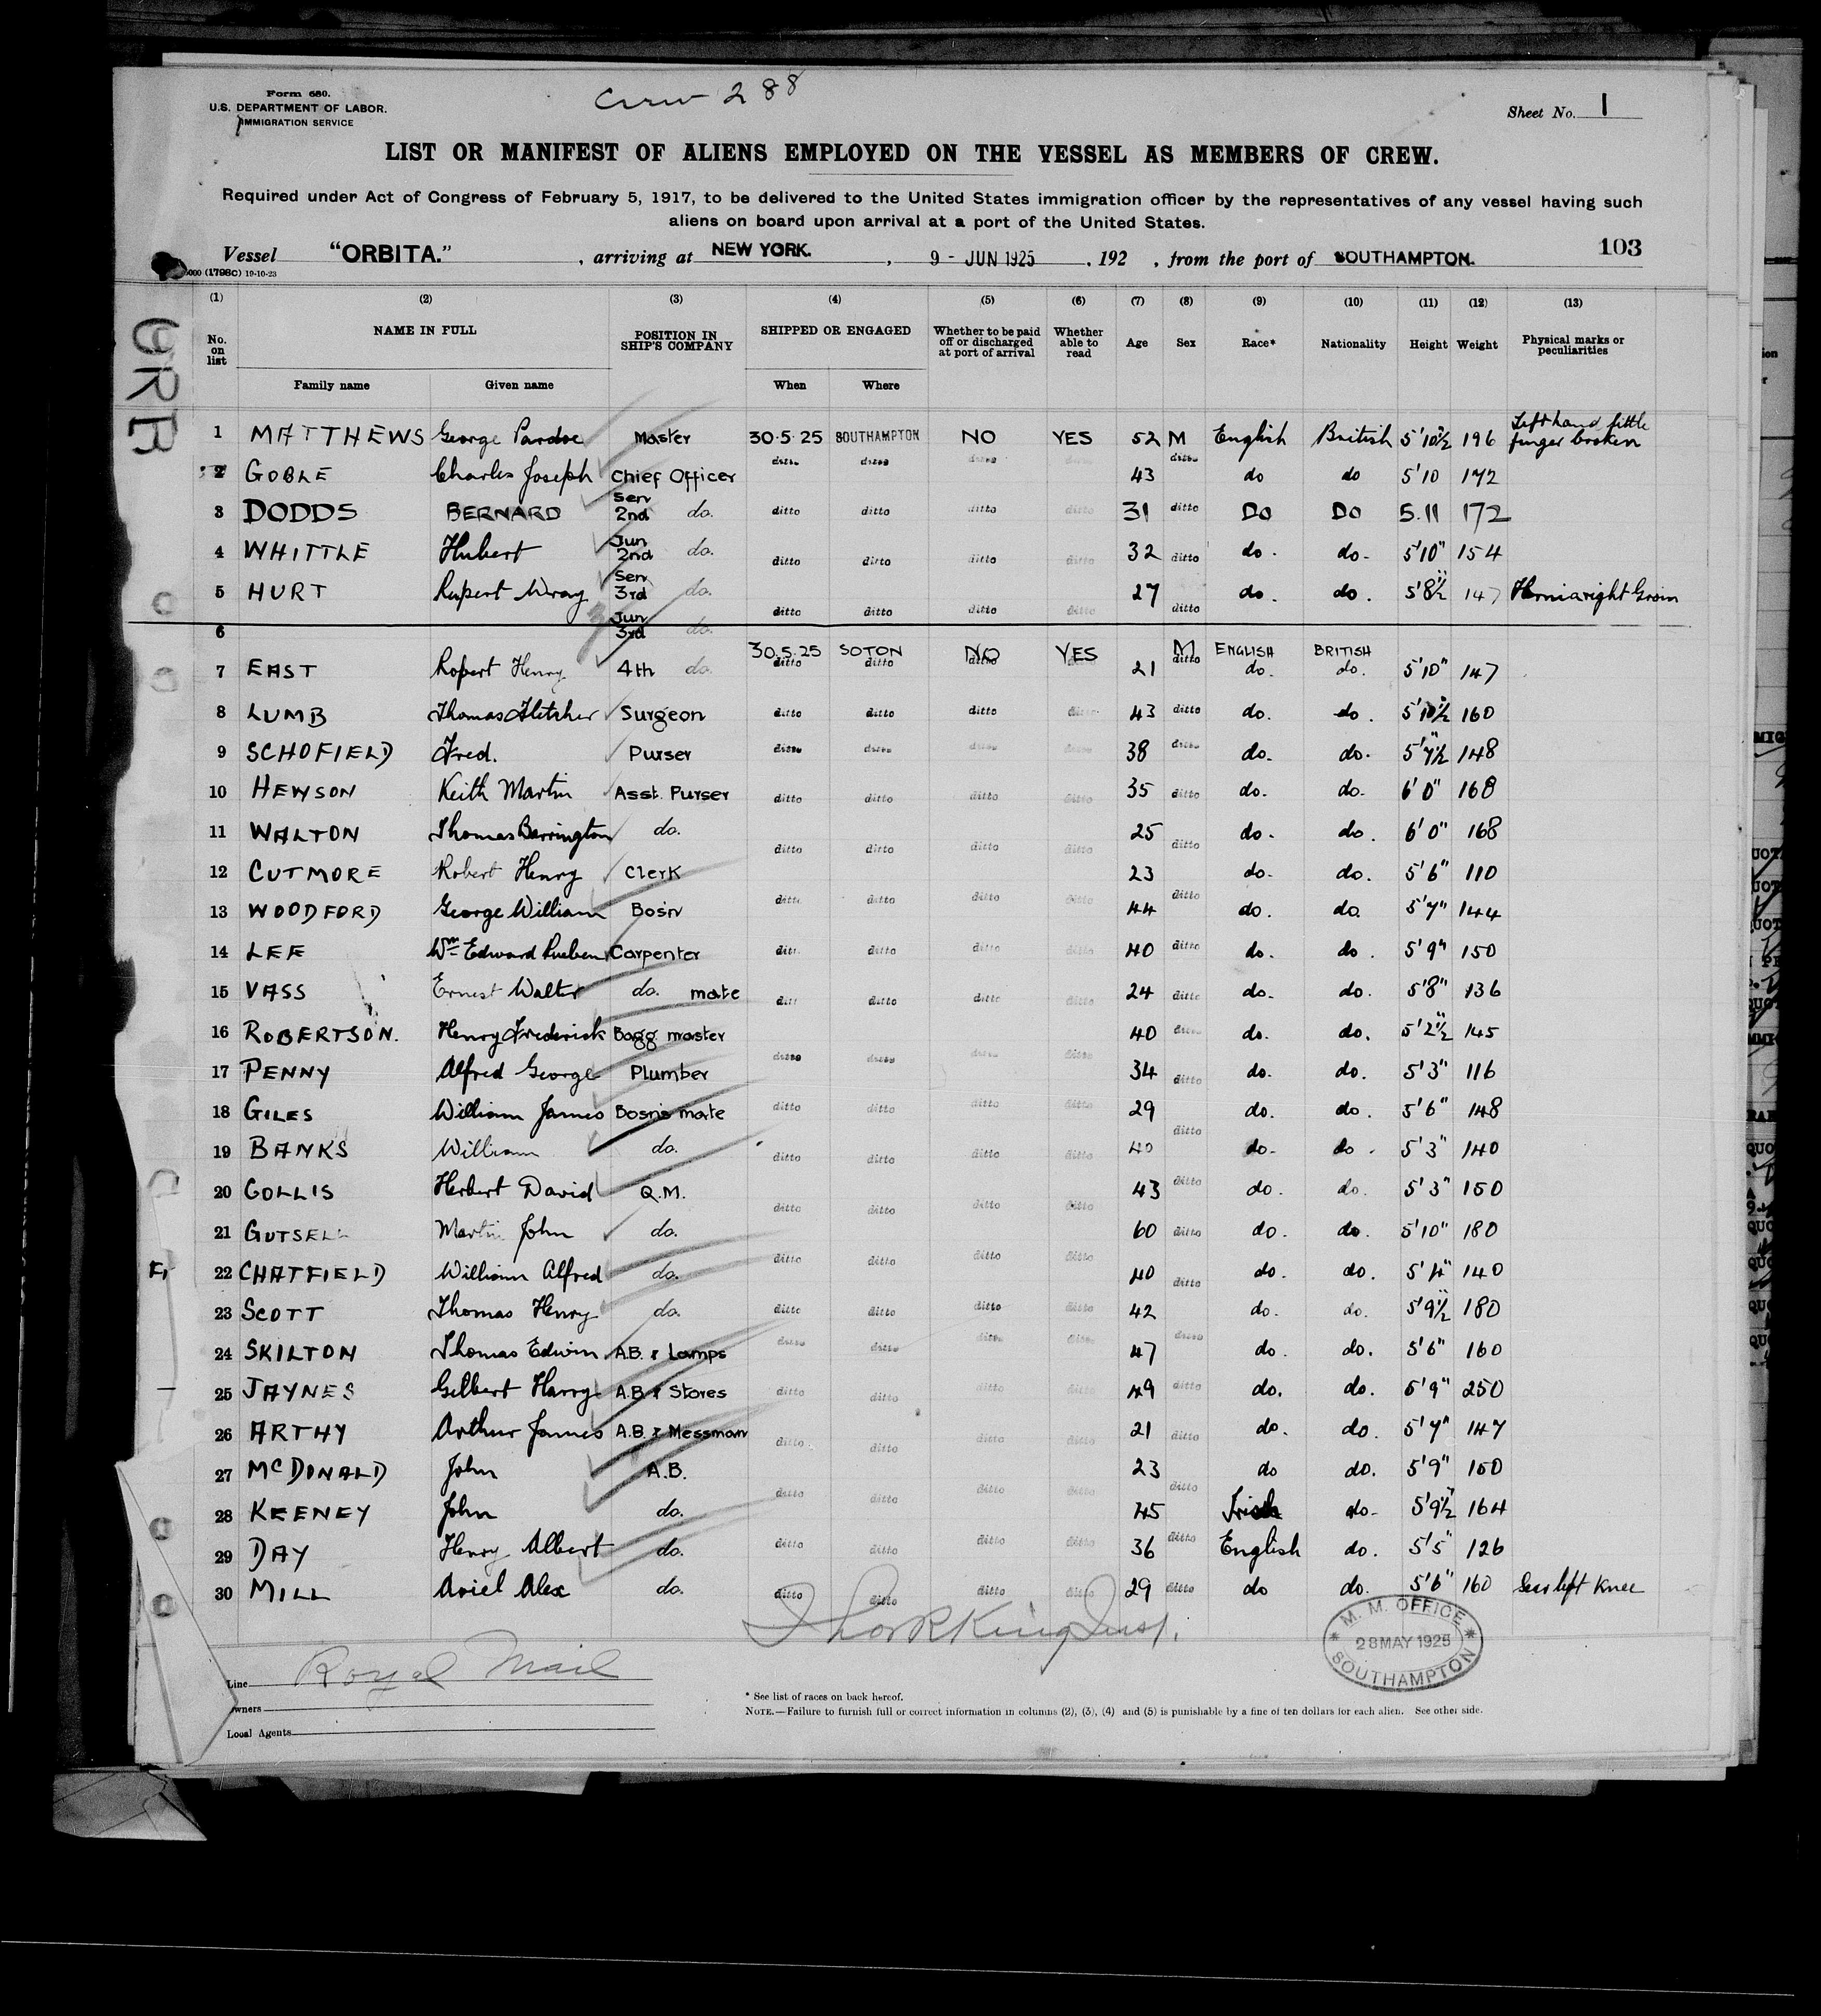 Form 680.
U.S. DEPARTMENT OF LABOR.
IMMIGRATION SERVICE
Crew 288
Sheet No. 1
LIST OR MANIFEST OF ALIENS EMPLOYED ON THE VESSEL AS MEMBERS OF CREW.
Required under Act of Congress of February 5, 1917, to be delivered to the United States immigration officer by the representatives of any vessel having such
aliens on board upon arrival at a port of the United States.
Vessel "ORBITA." , arriving at NEW YORK. , 9 - JUN 1925 , 192 , from the port of SOUTHAMPTON.
103
(1798C) 19-10-23
ORB
(1) (2) (3) (4) (5) (6) (7) (8) (9) (10) (11) (12) (13)
No. on list NAME IN FULL POSITION IN SHIP'S COMPANY SHIPPED OR ENGAGED Whether to be paid off or discharged at port of arrival Whether able to read Age Sex Race* Nationality Height Weight Physical marks or peculiarities
Family name Given name When Where
1 MATTHEWS George Pardoe Master 30.5.25 SOUTHAMPTON NO YES 52 M English British 5'10½" 196 Left hand little finger broken
2 GOBLE Charles Joseph Chief Officer ditto ditto ditto ditto 43 ditto do do 5'10 172
3 DODDS BERNARD Sen 2nd do. ditto ditto ditto ditto 31 ditto DO DO 5.11 172
4 WHITTLE Hubert Jun 2nd do. ditto ditto ditto ditto 32 ditto do. do- 5'10" 154
5 HURT Rupert Wray Sen 3rd do. ditto ditto ditto ditto 27 ditto do. do. 5'8½" 147 Hernia right Groin
6 Jun 3rd do.
30.5.25 SOTON NO YES M ENGLISH BRITISH
7 EAST Robert Henry 4th do. ditto ditto ditto 21 ditto do. do. 5'10" 147
8 LUMB Thomas Fletcher Surgeon ditto ditto ditto ditto 43 ditto do. do. 5'10½" 160
9 SCHOFIELD Fred. Purser ditto ditto ditto ditto 38 ditto do. do. 5'7½" 148
10 HEWSON Keith Martin Asst. Purser ditto ditto ditto ditto 35 ditto do. do. 6'0" 168
11 WALTON Thomas Barrington do. ditto ditto ditto ditto 25 ditto do. do. 6'0" 168
12 CUTMORE Robert Henry Clerk ditto ditto ditto ditto 23 ditto do. do. 5'6" 110
13 WOODFORD George William Bos'n 44 do. do. 5'7" 144
14 LEE Wm Edward Rueben Carpenter ditto ditto ditto ditto 40 ditto do. do. 5'9" 150
15 VASS Ernest Walter do. mate ditto ditto ditto ditto 24 ditto do. do. 5'8" 136
16 ROBERTSON. Henry Frederick Bagg. master 40 ditto do. do. 5'2½" 145
17 PENNY Alfred George Plumber ditto ditto ditto ditto 34 ditto do. do. 5'3" 116
18 GILES William James Bosn's mate ditto ditto ditto ditto 29 ditto do. do. 5'6" 148
19 BANKS William do. ditto ditto ditto ditto 40 do. do. 5'3" 140
20 GOLLIS Herbert David Q.M. ditto ditto ditto ditto 43 ditto do. do. 5'3" 150
21 GUTSELL Martin John do. 60 ditto do. do. 5'10" 180
22 CHATFIELD William Alfred do. ditto ditto ditto ditto 40 ditto do. do. 5'4" 140
23 SCOTT Thomas Henry do. ditto ditto ditto ditto 42 do. do. 5'9½" 180
24 SKILTON Thomas Edwin A.B. & Lamps ditto ditto ditto ditto 47 ditto do. do. 5'6" 160
25 JAYNES Gilbert Harry A.B. & Stores ditto ditto ditto ditto 49 ditto do. do. 5'9" 250
26 ARTHY Arthur James A.B. & Messman ditto ditto ditto ditto 21 ditto do. do. 5'7" 147
27 McDONALD John A.B. 23 do do. 5'9" 150
28 KEENEY John do. ditto ditto ditto ditto 45 ditto Irish do- 5'9½" 164
29 DAY Henry Albert do. ditto ditto ditto ditto 36 ditto English do. 5'5" 126
30 MILL Ariel Alex do. ditto ditto ditto ditto 29 ditto do do. 5'6" 160 left Knee
M. M. OFFICE
28 MAY 1925
SOUTHAMPTON
Line Royal Mail
Owners
Local Agents
* See list of races on back hereof.
NOTE.—Failure to furnish full or correct information in columns (2), (3), (4) and (5) is punishable by a fine of ten dollars for each alien. See other side.